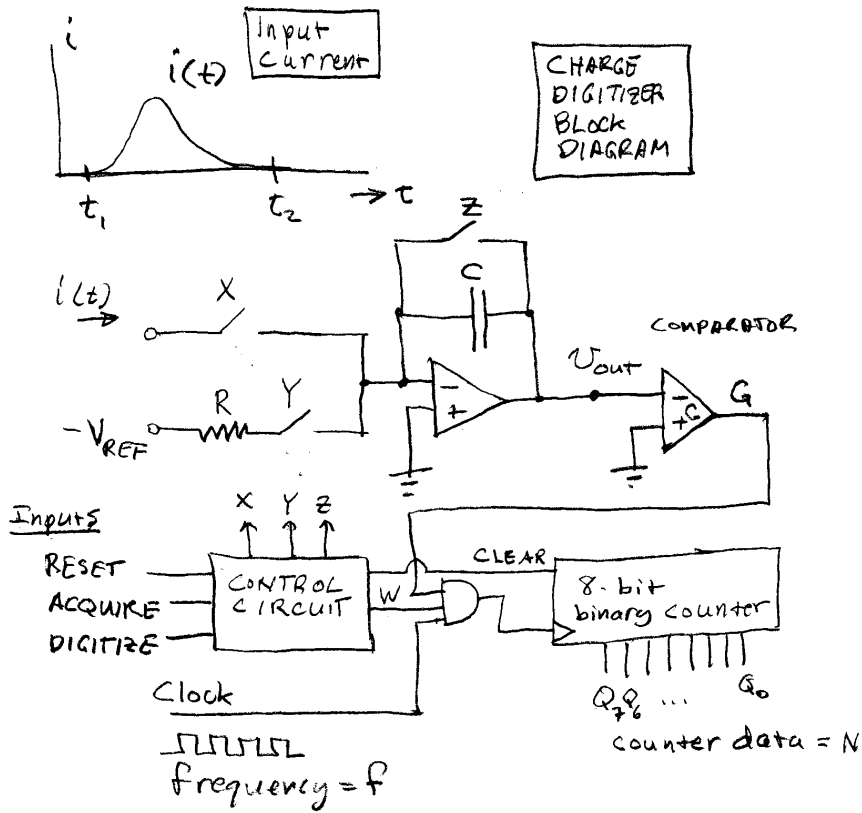 i
Input
Current
i(t)
CHARGE
DIGITIZER
BLOCK
DIAGRAM
t₁
t₂
t
Z
C
i(t)
X
COMPARATOR
Vout
R
Y
-VREF
−
+
−
+
C
G
X Y Z
Inputs
RESET
ACQUIRE
DIGITIZE
CONTROL
CIRCUIT
W
CLEAR
8-bit
binary counter
Clock
Q₇Q₆ ... Q₀
counter data = N
frequency = f